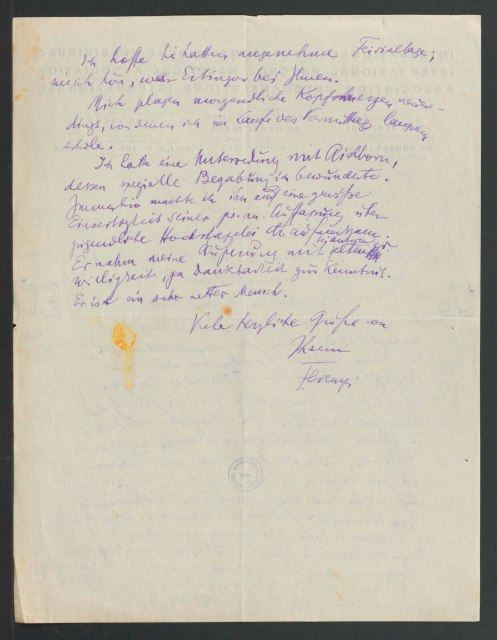 Ich hoffe Sie hatten angenehme Feiertage;
wie ich höre, war Eitingon bei Ihnen.
Mich plagen morgendliche Kopfschmerzen neuer-
dings, von denen ich im Laufe des Vormittags langsam
erhole.
Ich hatte eine Unterredung mit Aichhorn,
dessen spezielle Begabung ich bewunderte.
Immerhin machte ich ihn auf eine gewisse
Einseitigkeit seiner ps. an. Auffassung über
jugendliche Hochstapelei aufmerksam.
Er nahm meine Äußerung mit seltener
Willigkeit, ja Dankbarkeit zur Kenntnis.
Er ist ein sehr netter Mensch.
Viele herzliche Grüße an
Ihrem
Ferenczi